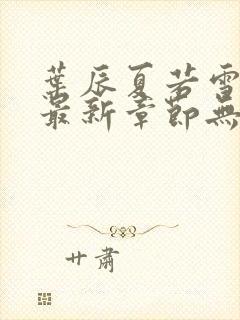 葉辰夏若雪
最新章節無
廿肅